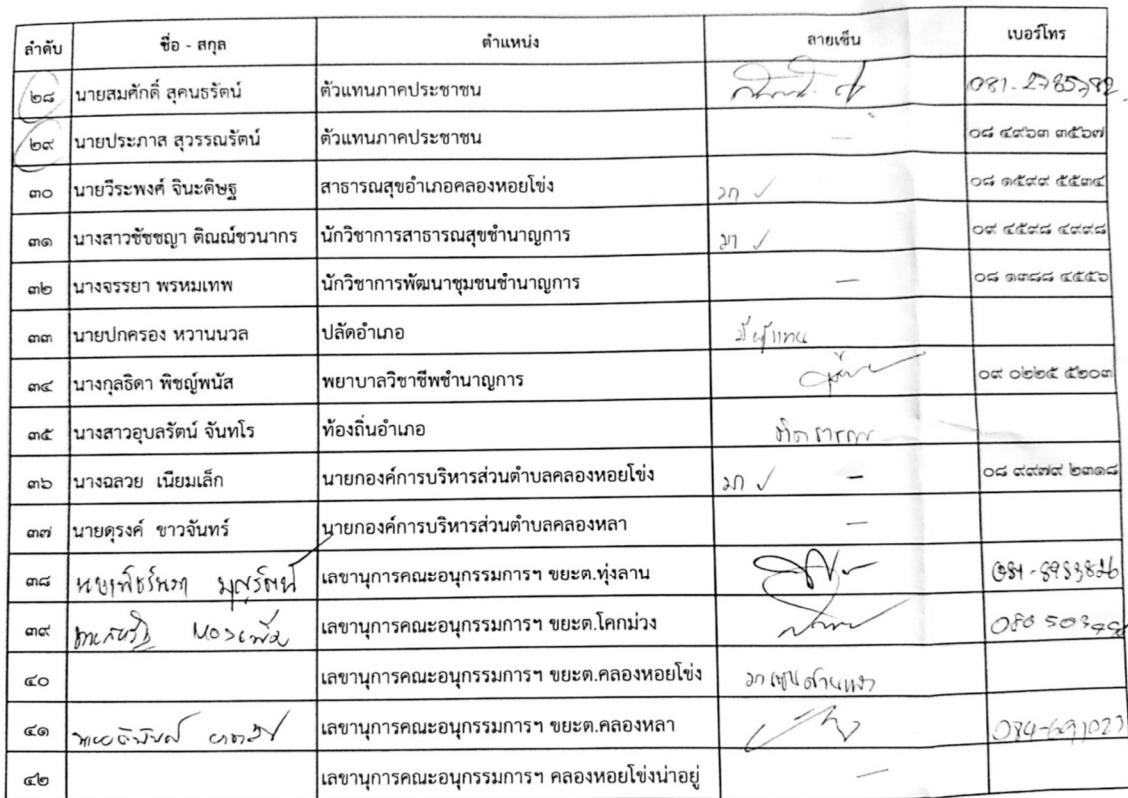 ลำดับ ชื่อ - สกุล ตำแหน่ง ลายเซ็น เบอร์โทร
๒๘ นายสมศักดิ์ สุคนธรัตน์ ตัวแทนภาคประชาชน 081-2785782
๒๙ นายประภาส สุวรรณรัตน์ ตัวแทนภาคประชาชน — ๐๘ ๔๙๖๓ ๓๕๖๗
๓๐ นายวีระพงศ์ จินะดิษฐ สาธารณสุขอำเภอคลองหอยโข่ง มา ✓ ๐๘ ๑๕๙๙ ๕๕๓๔
๓๑ นางสาวชัชชญา ติณณ์ชวนากร นักวิชาการสาธารณสุขชำนาญการ มา ✓ ๐๙ ๔๕๙๘ ๔๙๙๘
๓๒ นางจรรยา พรหมเทพ นักวิชาการพัฒนาชุมชนชำนาญการ — ๐๘ ๑๓๘๘ ๔๕๕๖
๓๓ นายปกครอง หวานนวล ปลัดอำเภอ
๓๔ นางกุลธิดา พิชญ์พนัส พยาบาลวิชาชีพชำนาญการ ๐๙ ๐๒๒๕ ๕๒๐๓
๓๕ นางสาวอุบลรัตน์ จันทโร ท้องถิ่นอำเภอ ติดราชการ
๓๖ นางฉลวย เนียมเล็ก นายกองค์การบริหารส่วนตำบลคลองหอยโข่ง มา ✓ — ๐๘ ๙๙๗๙ ๒๓๑๘
๓๗ นายดุรงค์ ขาวจันทร์ นายกองค์การบริหารส่วนตำบลคลองหลา —
๓๘ เลขานุการคณะอนุกรรมการฯ ขยะต.ทุ่งลาน
๓๙ เลขานุการคณะอนุกรรมการฯ ขยะต.โคกม่วง
๔๐ เลขานุการคณะอนุกรรมการฯ ขยะต.คลองหอยโข่ง
๔๑ เลขานุการคณะอนุกรรมการฯ ขยะต.คลองหลา
๔๒ เลขานุการคณะอนุกรรมการฯ คลองหอยโข่งน่าอยู่ —